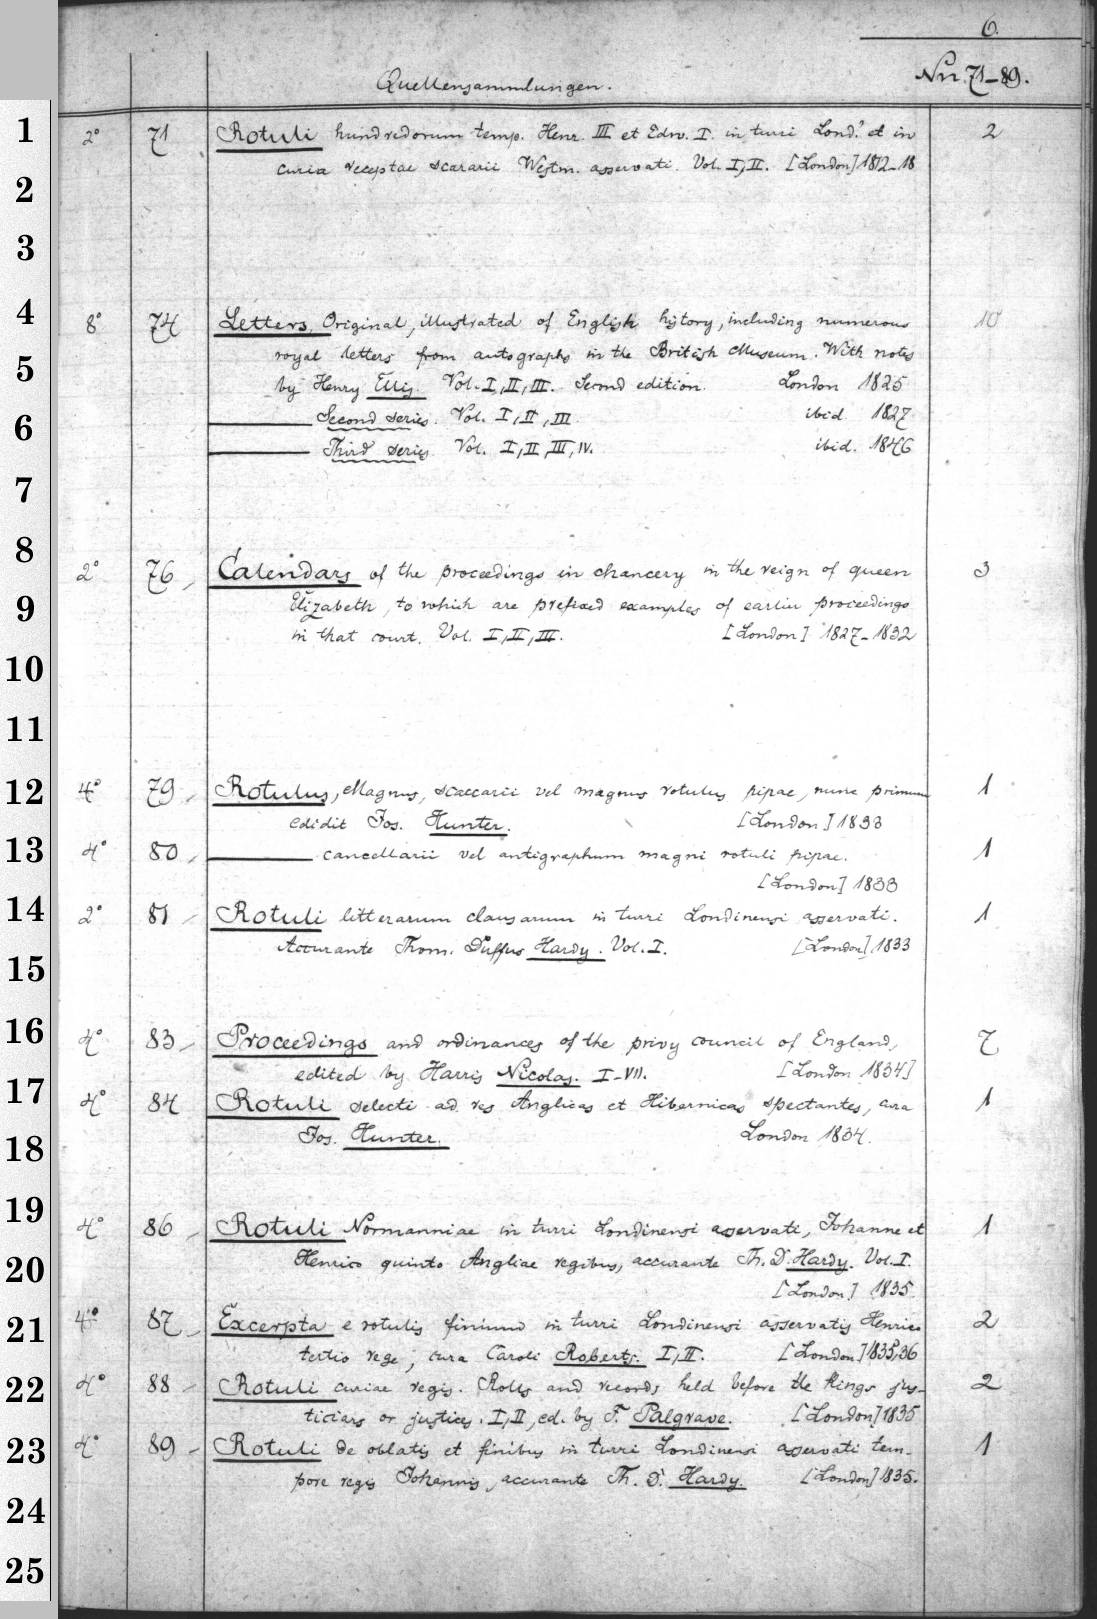 6.
Quellensammlungen.
Nrr. 71-89.
1 2° 71 Rotuli hundredorum temp. Henr. III et Edw. I. in turri Lond. et in 2
curia receptae scararii Westm. asservati. Vol. I, II. [London] 1812-18
2
3
4 8° 74 Letters, Original, illustrated of English history, including numerous 10
royal letters from autographs in the British Museum. With notes
5 by Henry Ellis. Vol. I, II, III. Second edition. London 1825
6 Second series. Vol. I, II, III ibid 1827
Third series. Vol. I, II, III, IV. ibid. 1846
7
8 2° 76 Calendars of the proceedings in chancery in the reign of queen 3
9 Elizabeth, to which are prefixed examples of earlier proceedings
in that court. Vol. I, II, III. [London] 1827-1832
10
11
12 4° 79 Rotulus, Magnus, scaccarii vel magnus rotulus pipae, nunc primum 1
edidit Jos. Hunter. [London] 1833
13 4° 80 cancellarii vel antigraphum magni rotuli pipae. 1
[London] 1833
14 2° 81 Rotuli litterarum clausarum in turri Londinensi asservati. 1
15 Accurante Thom. Duffus Hardy. Vol. I. [London] 1833
16 4° 83 Proceedings and ordinances of the privy council of England, 7
edited by Harris Nicolas. I-VII. [London 1834]
17 4° 84 Rotuli selecti ad res Anglicas et Hibernicas spectantes, cura 1
18 Jos. Hunter. London 1834.
19 4° 86 Rotuli Normanniae in turri Londinensi asservati, Johanne et 1
20 Henrico quinto Angliae regibus, accurante Th. D. Hardy. Vol. I.
[London] 1835.
21 4° 87 Excerpta e rotulis finium in turri Londinensi asservatis Henrico 2
tertio rege, cura Caroli Roberts. I, II. [London] 1835, 36
22 4° 88 Rotuli curiae regis. Rolls and records held before the Kings jus- 2
ticiars or justices. I, II, ed. by F. Palgrave. [London] 1835
23 4° 89 Rotuli de oblatis et finibus in turri Londinensi asservati tem- 1
pore regis Johannis, accurante Th. D. Hardy. [London] 1835.
24
25